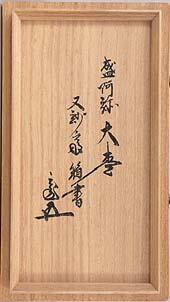 盛阿弥 大棗
又玅斎 箱書